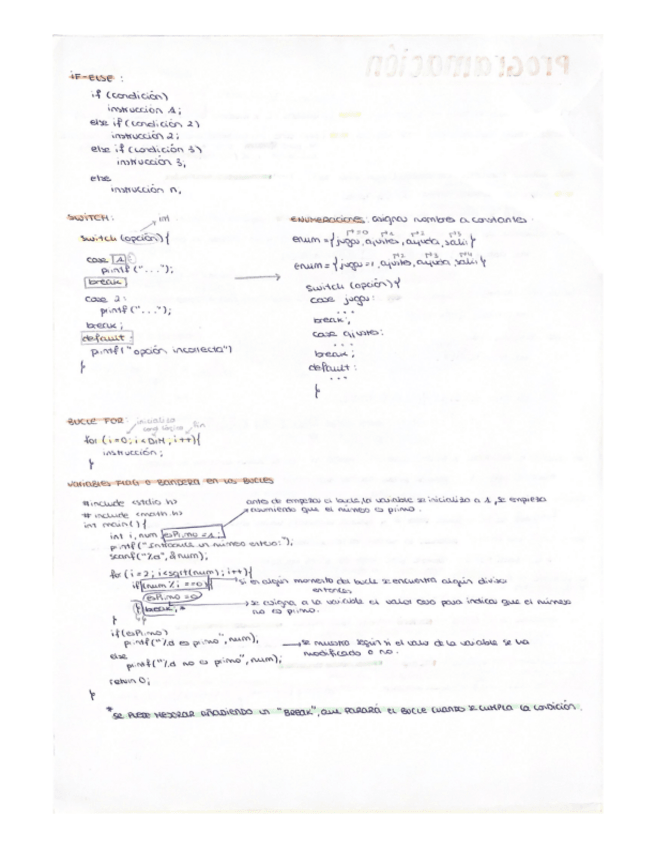 Programación
IF-ELSE :
if (condición)
instrucción 1;
else if (condición 2)
instrucción 2;
else if (condición 3)
instrucción 3;
else
instrucción n;
SWITCH:
int
switch (opción){
case 1:
printf("...");
break;
case 2:
printf("...");
break;
default:
printf("opción incorrecta")
}
ENUMERACIONES: asigna nombres a constantes.
enum={jugar, ajustes, ayuda, salir}
enum={jugar=1, ajustes, ayuda, salir}
switch (opción){
case jugar:
...
break;
case ajustes:
...
break;
default:
...
}
BUCLE FOR:
fin
for (i=0; i<DIM; i++){
instrucción;
}
VARIABLES FLAG O BANDERA EN LOS BUCLES
#include <stdio.h>
#include <math.h>
int main(){
int i, num, esPrimo=1;
printf("Introduce un número entero:");
scanf("%d", &num);
antes de empezar el bucle, la variable se inicializa a 1, se empieza
asumiendo que el número es primo.
for (i=2; i<sqrt(num); i++){
if(num % i ==0){
esPrimo=0;
break; *
} }
si en algún momento del bucle se encuentra algún divisor
entonces
se asigna a la variable el valor cero para indicar que el número
no es primo.
if(esPrimo)
printf("%d es primo", num);
else
printf("%d no es primo", num);
se muestra según si el valor de la variable se ha
modificado o no.
return 0;
}
* SE PUEDE MEJORAR AÑADIENDO UN "BREAK", QUE PARARÁ EL BUCLE CUANDO SE CUMPLA LA CONDICIÓN.